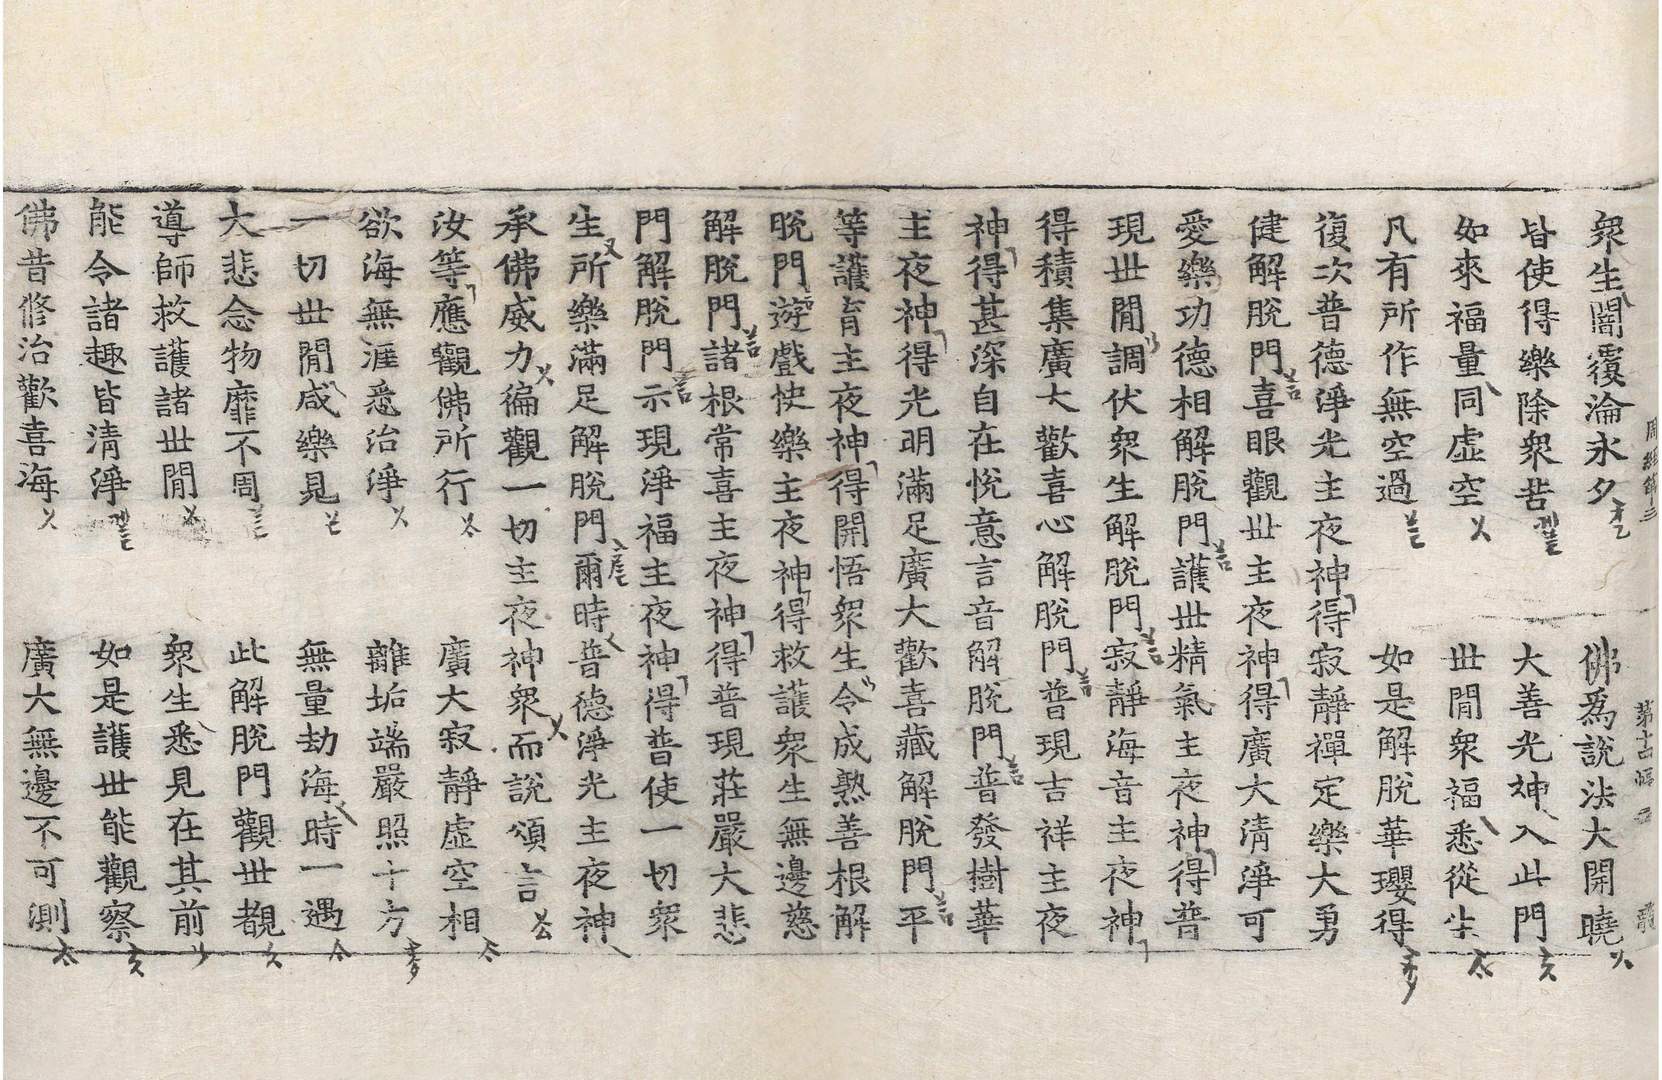 衆生闇覆淪永夕 佛為說法大開曉
皆使得樂除衆苦 大善光神入此門
如來福量同虛空 世間衆福悉從生
凡有所作無空過 如是解脫華瓔得
復次普德淨光主夜神得寂靜禪定樂大勇
健解脫門喜眼觀世主夜神得廣大清淨可
愛樂功德相解脫門護世精氣主夜神得普
現世間調伏衆生解脫門寂靜海音主夜神
得積集廣大歡喜心解脫門普現吉祥主夜
神得甚深自在悅意言音解脫門普發樹華
主夜神得光明滿足廣大歡喜藏解脫門平
等護育主夜神得開悟衆生令成熟善根解
脫門遊戲快樂主夜神得救護衆生無邊慈
解脫門諸根常喜主夜神得普現莊嚴大悲
門解脫門示現淨福主夜神得普使一切衆
生所樂滿足解脫門爾時普德淨光主夜神
承佛威力徧觀一切主夜神衆而說頌言
汝等應觀佛所行 廣大寂靜虛空相
欲海無涯悉治淨 離垢端嚴照十方
一切世間咸樂見 無量劫海時一遇
大悲念物靡不周 此解脫門觀世覩
導師救護諸世間 衆生悉見在其前
能令諸趣皆清淨 如是護世能觀察
佛昔修治歡喜海 廣大無邊不可測